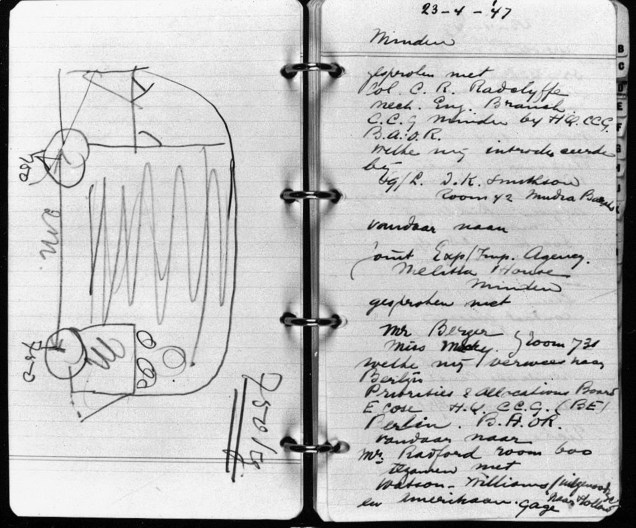 750
2 m.
750
750 kg
23-4-'47
Minden
gesproken met
Col. C. R. Radclyffe
Mech. Eng. Branch.
C.C.G Minden by H.Q. CCG.
B.A.O.R.
welke mij introduceerde
bij
Sq/L. D.K. Smithson
Room 42 Mudra
vandaar naar
Joint Exp/Imp. Agency.
Melitta House
Minden
gesproken met
Mr Berger
Miss Room 731
welke mij verwees naar
Berlijn
Priorities & Allocations Board
Econ H.Q. CCG. (BE)
Berlin. B.A.O.R.
vandaar naar
Mr Radford room 600
tezamen met
Watson-Williams
en Amerikaan. Gage
B
C
D
E
F